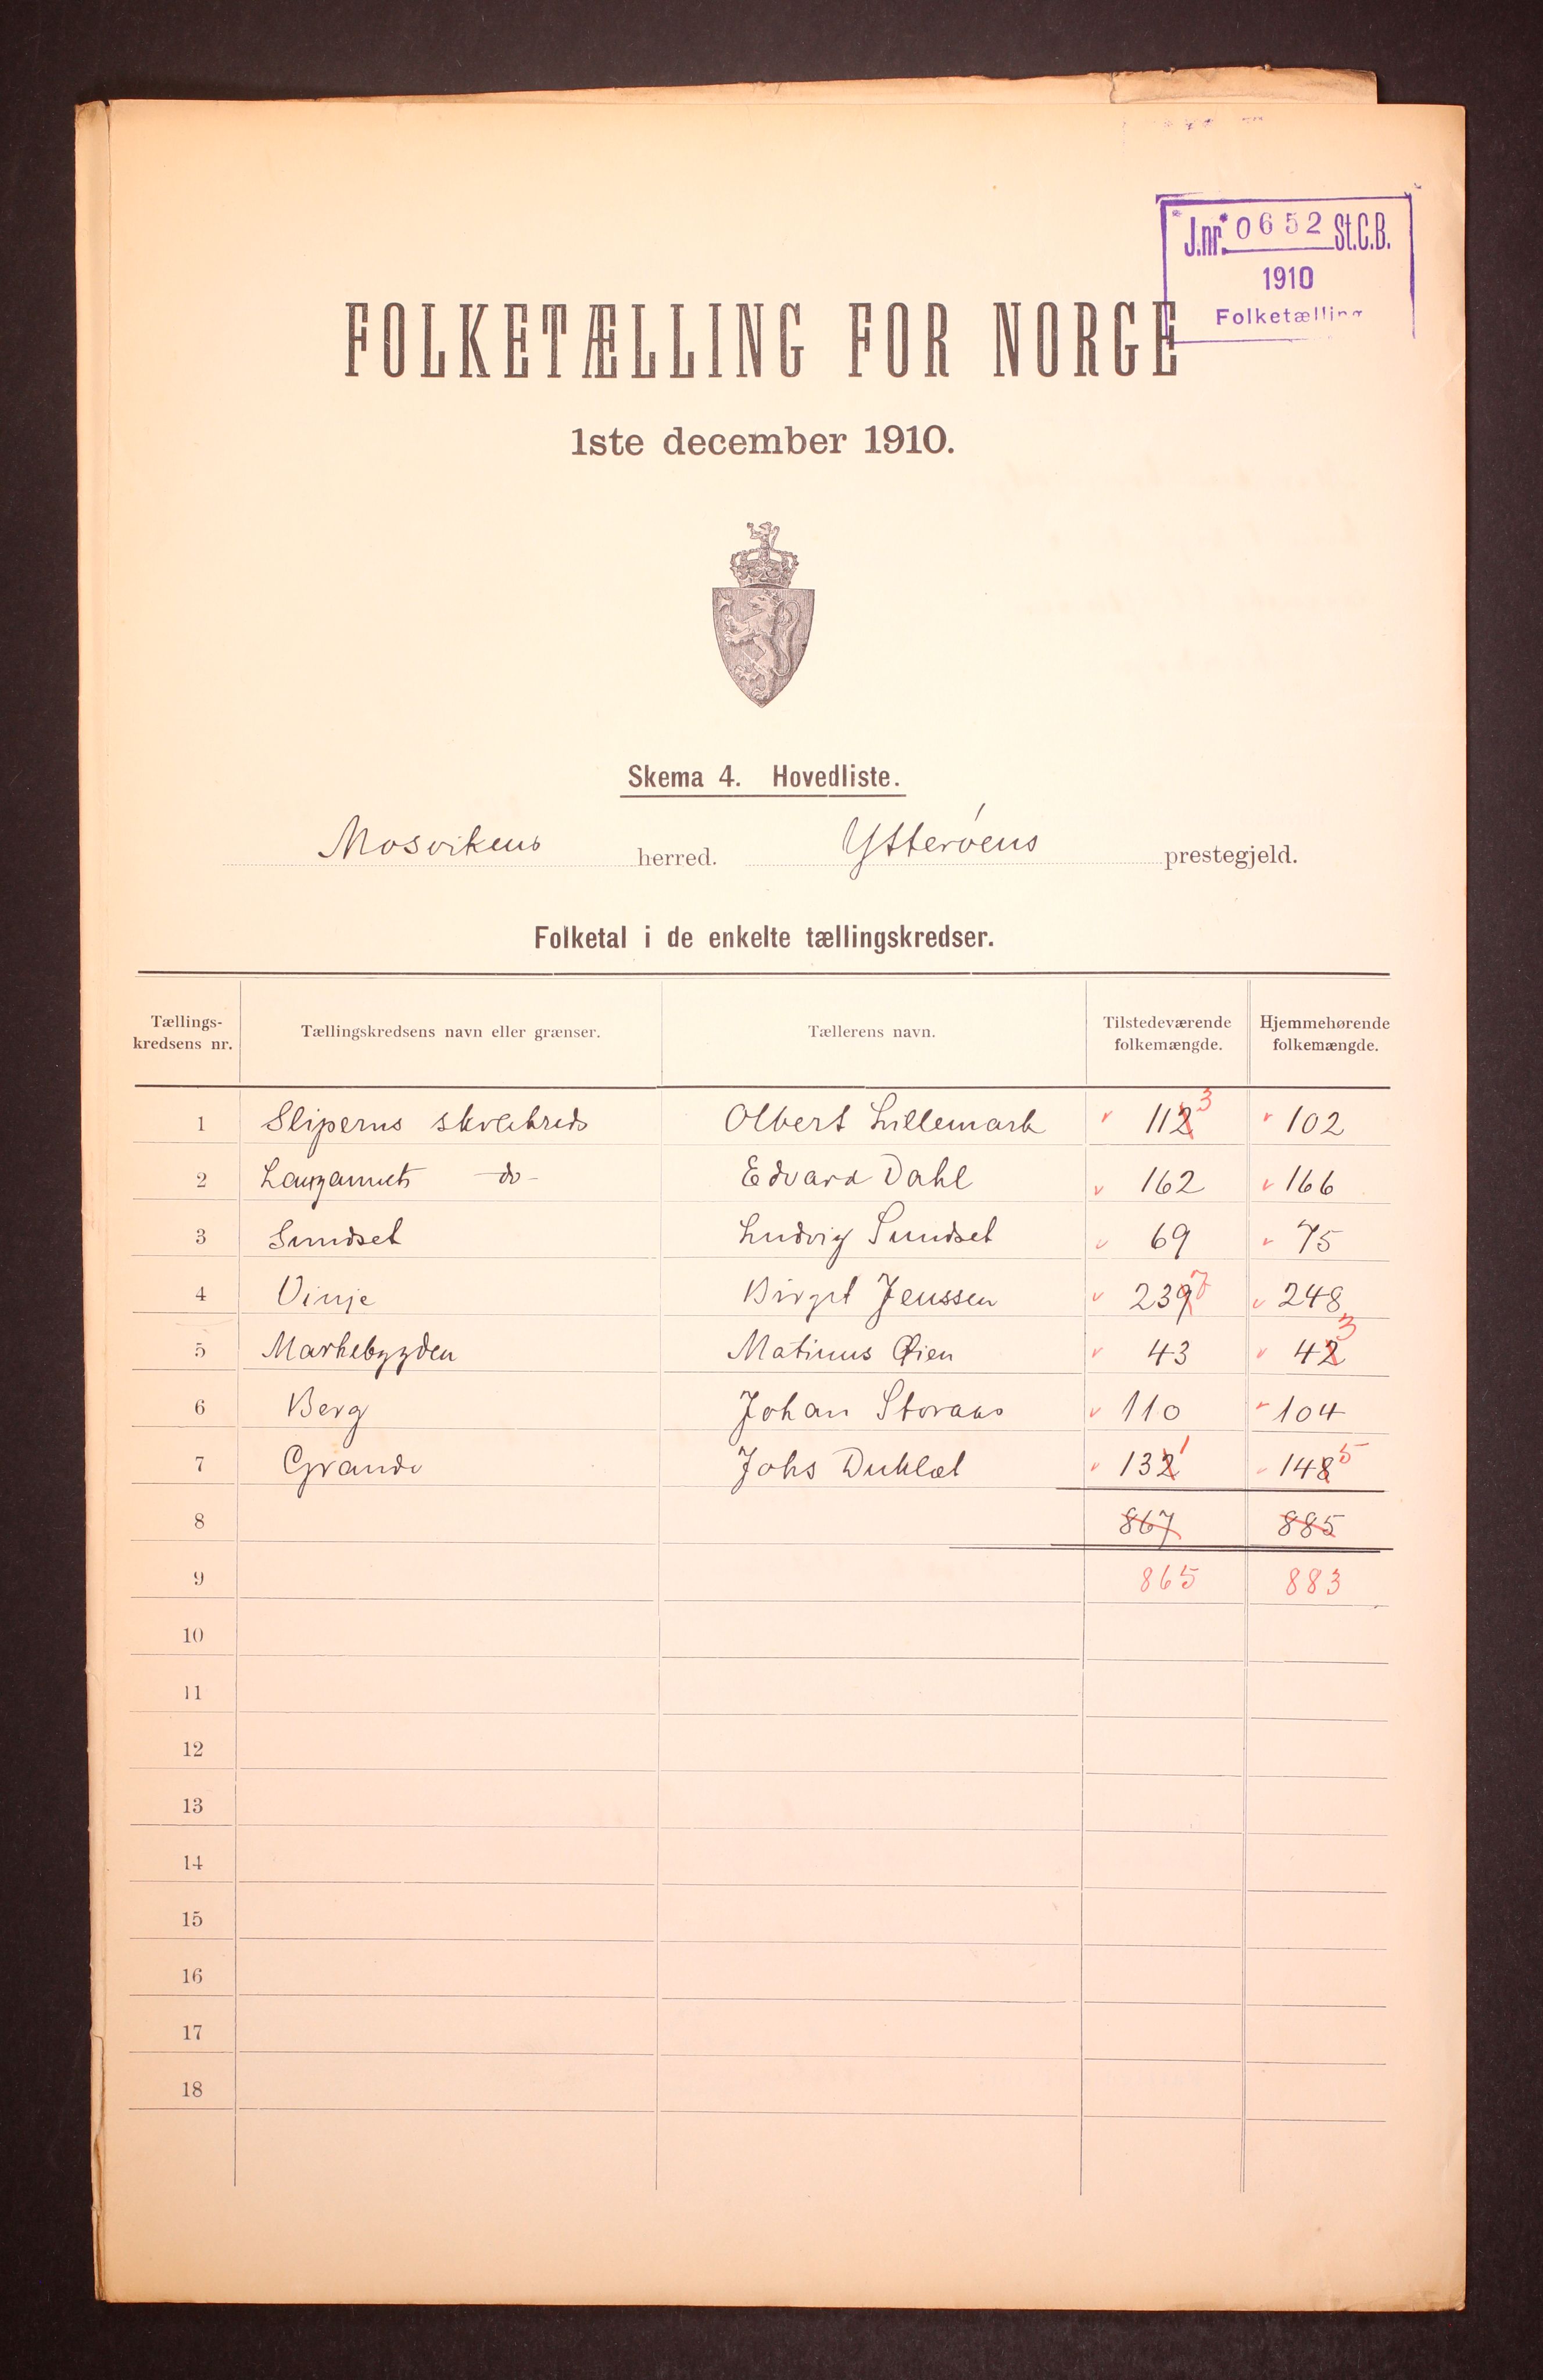 J.nr. 0652 St.C.B.
1910
Folketælling
FOLKETÆLLING FOR NORGE
1ste december 1910.
Skema 4. Hovedliste.
Mosvikens herred. Ytterøens prestegjeld.
Folketal i de enkelte tællingskredser.
Tællings-kredsens nr. Tællingskredsens navn eller grænser. Tællerens navn. Tilstedeværende folkemængde. Hjemmehørende folkemængde.
1 Sliperns skolekreds Olbert Lillemark 112 3 102
2 do Edvard Dahl 162 166
3 Sundset Ludvig Sundset 69 75
4 Vinje Birget Jenssen 239 7 248
5 Markebygden Matinus Øien 43 42 3
6 Berg Johan Storaas 110 104
7 Grande Johs 132 1 148 5
8 867 885
9 865 883
10
11
12
13
14
15
16
17
18